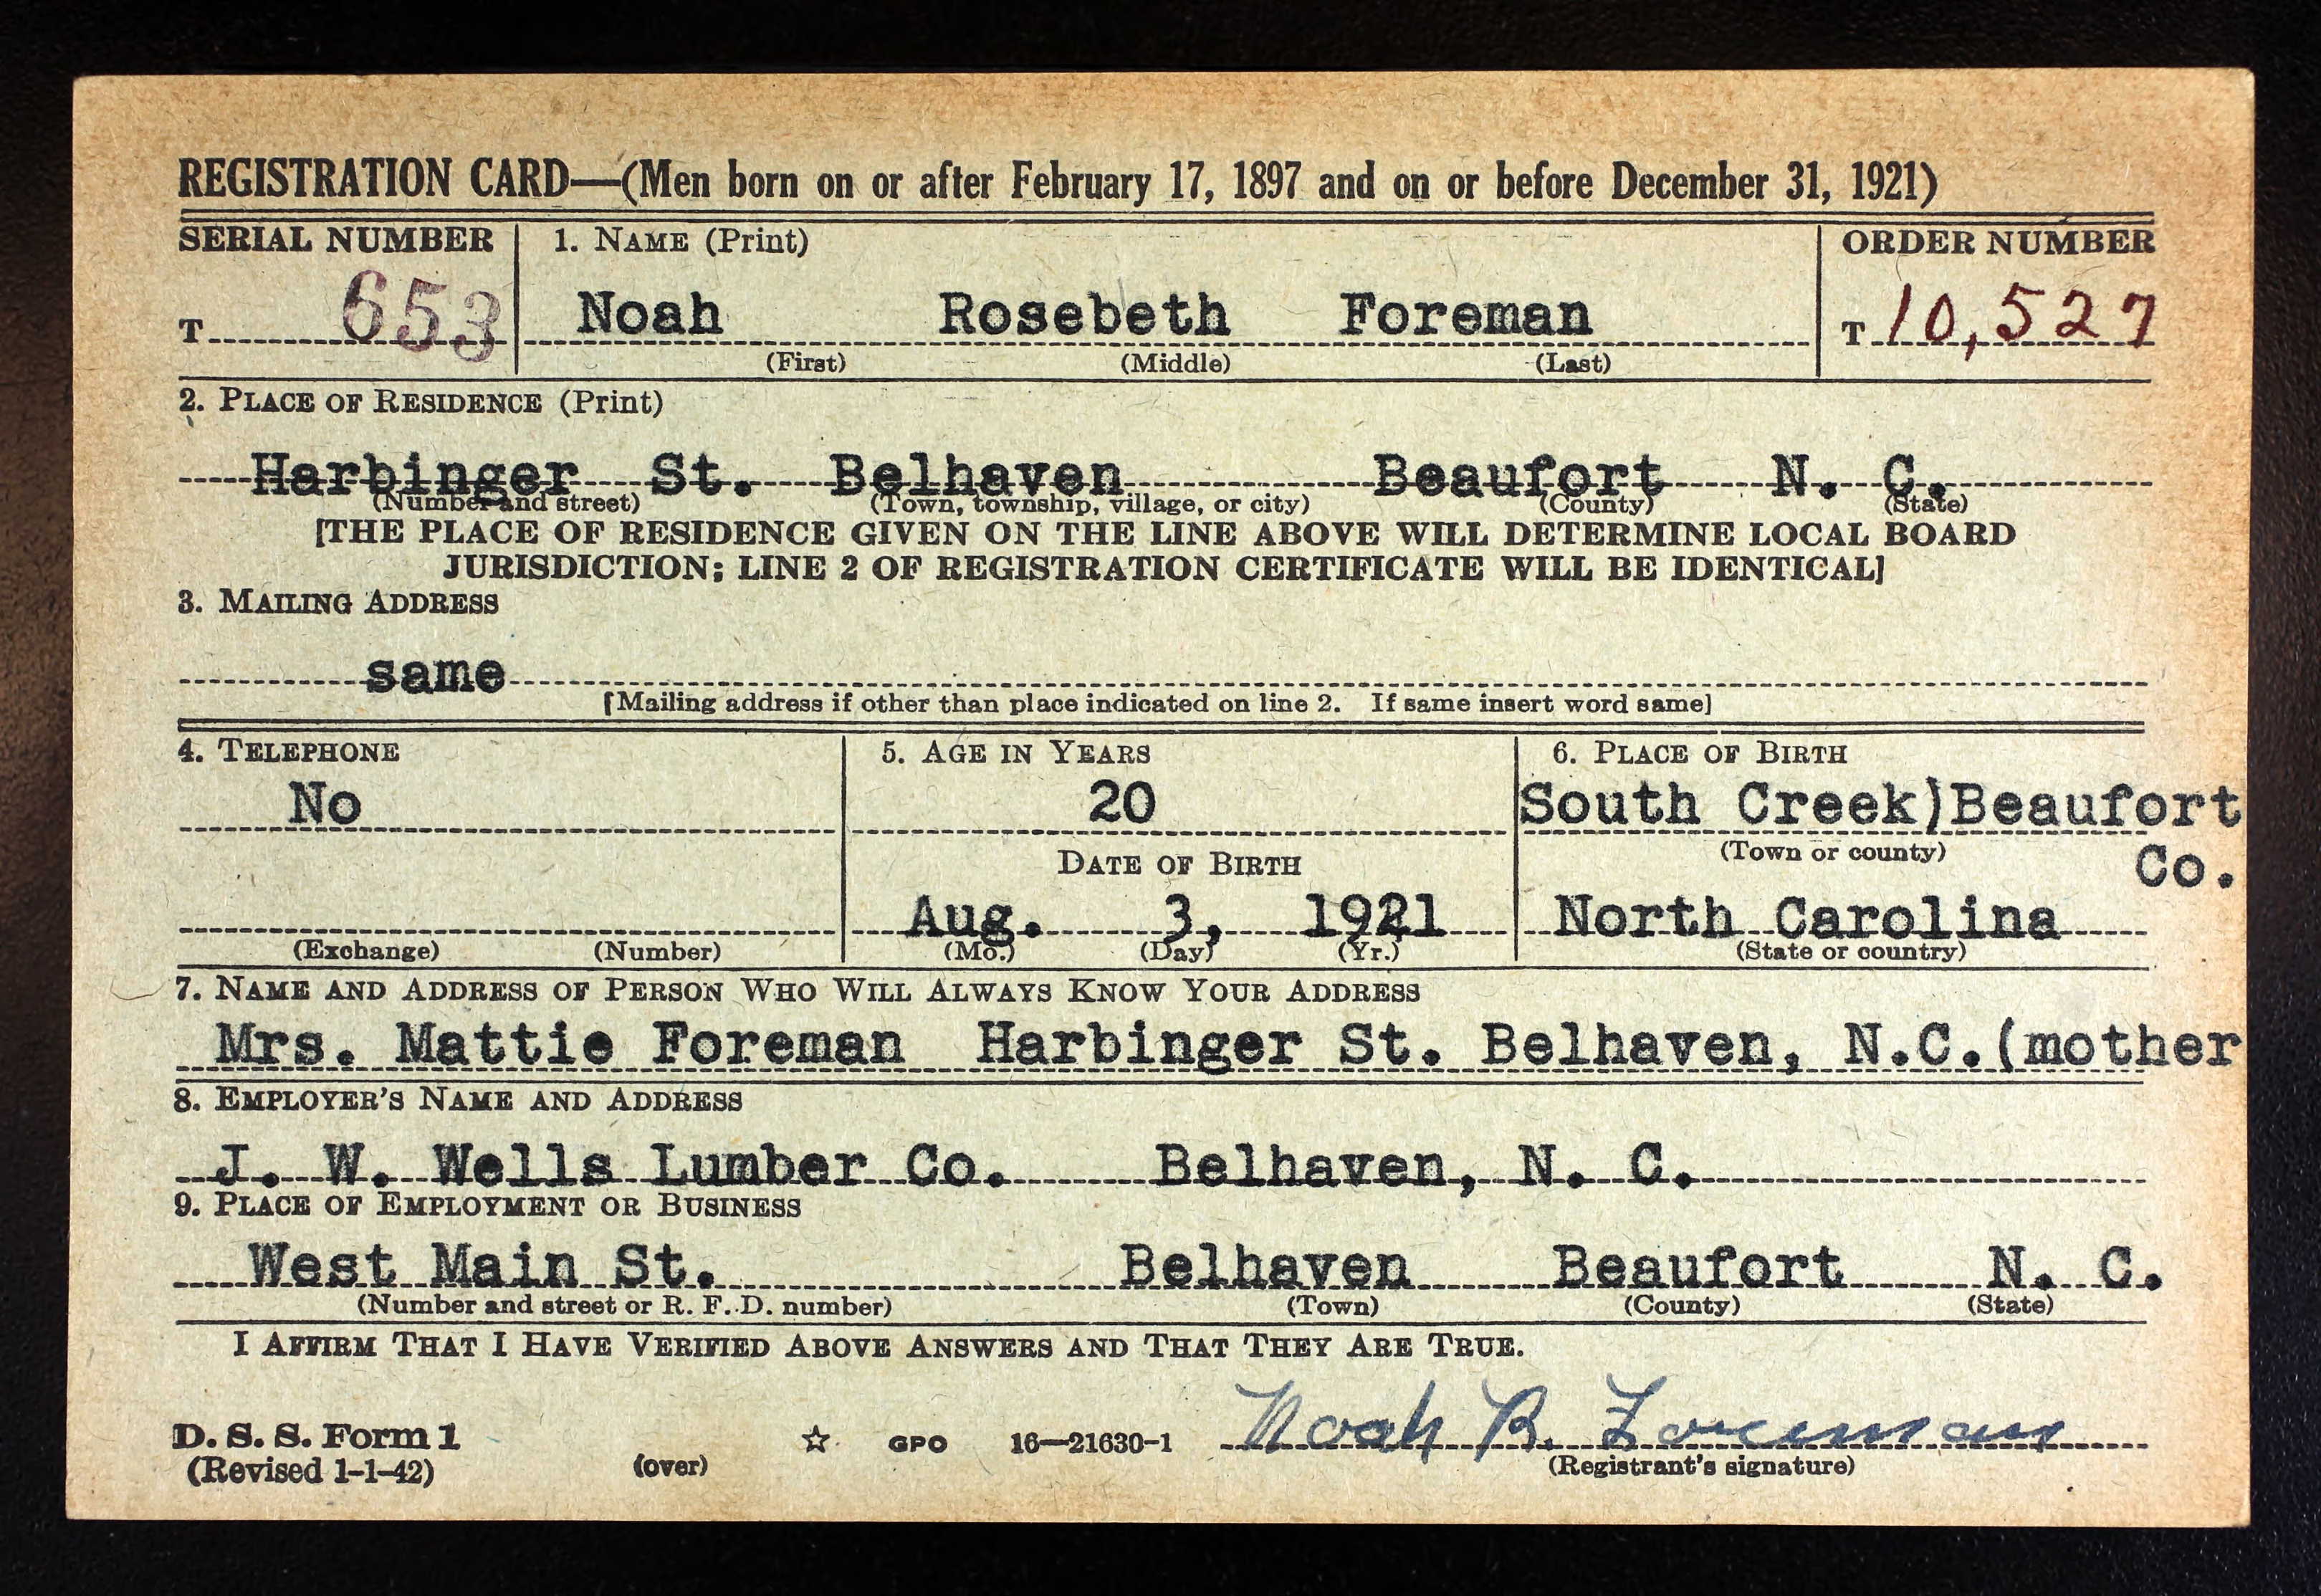 REGISTRATION CARD—(Men born on or after February 17, 1897 and on or before December 31, 1921)
SERIAL NUMBER 1. NAME (Print) ORDER NUMBER
T 653 Noah Rosebeth Foreman T 10,527
(First) (Middle) (Last)
2. PLACE OF RESIDENCE (Print)
Harbinger St. Belhaven Beaufort N. C.
(Number and street) (Town, township, village, or city) (County) (State)
[THE PLACE OF RESIDENCE GIVEN ON THE LINE ABOVE WILL DETERMINE LOCAL BOARD
JURISDICTION; LINE 2 OF REGISTRATION CERTIFICATE WILL BE IDENTICAL]
3. MAILING ADDRESS
same
[Mailing address if other than place indicated on line 2. If same insert word same]
4. TELEPHONE 5. AGE IN YEARS 6. PLACE OF BIRTH
No 20 South Creek)Beaufort
(Town or county) Co.
DATE OF BIRTH
Aug. 3, 1921 North Carolina
(Exchange) (Number) (Mo.) (Day) (Yr.) (State or country)
7. NAME AND ADDRESS OF PERSON WHO WILL ALWAYS KNOW YOUR ADDRESS
Mrs. Mattie Foreman Harbinger St. Belhaven, N.C.(mother
8. EMPLOYER'S NAME AND ADDRESS
J. W. Wells Lumber Co. Belhaven, N. C.
9. PLACE OF EMPLOYMENT OR BUSINESS
West Main St. Belhaven Beaufort N. C.
(Number and street or R. F. D. number) (Town) (County) (State)
I AFFIRM THAT I HAVE VERIFIED ABOVE ANSWERS AND THAT THEY ARE TRUE.
D. S. S. Form 1 ☆ GPO 16—21630-1 Noah R. Foreman
(Revised 1-1-42) (over) (Registrant's signature)